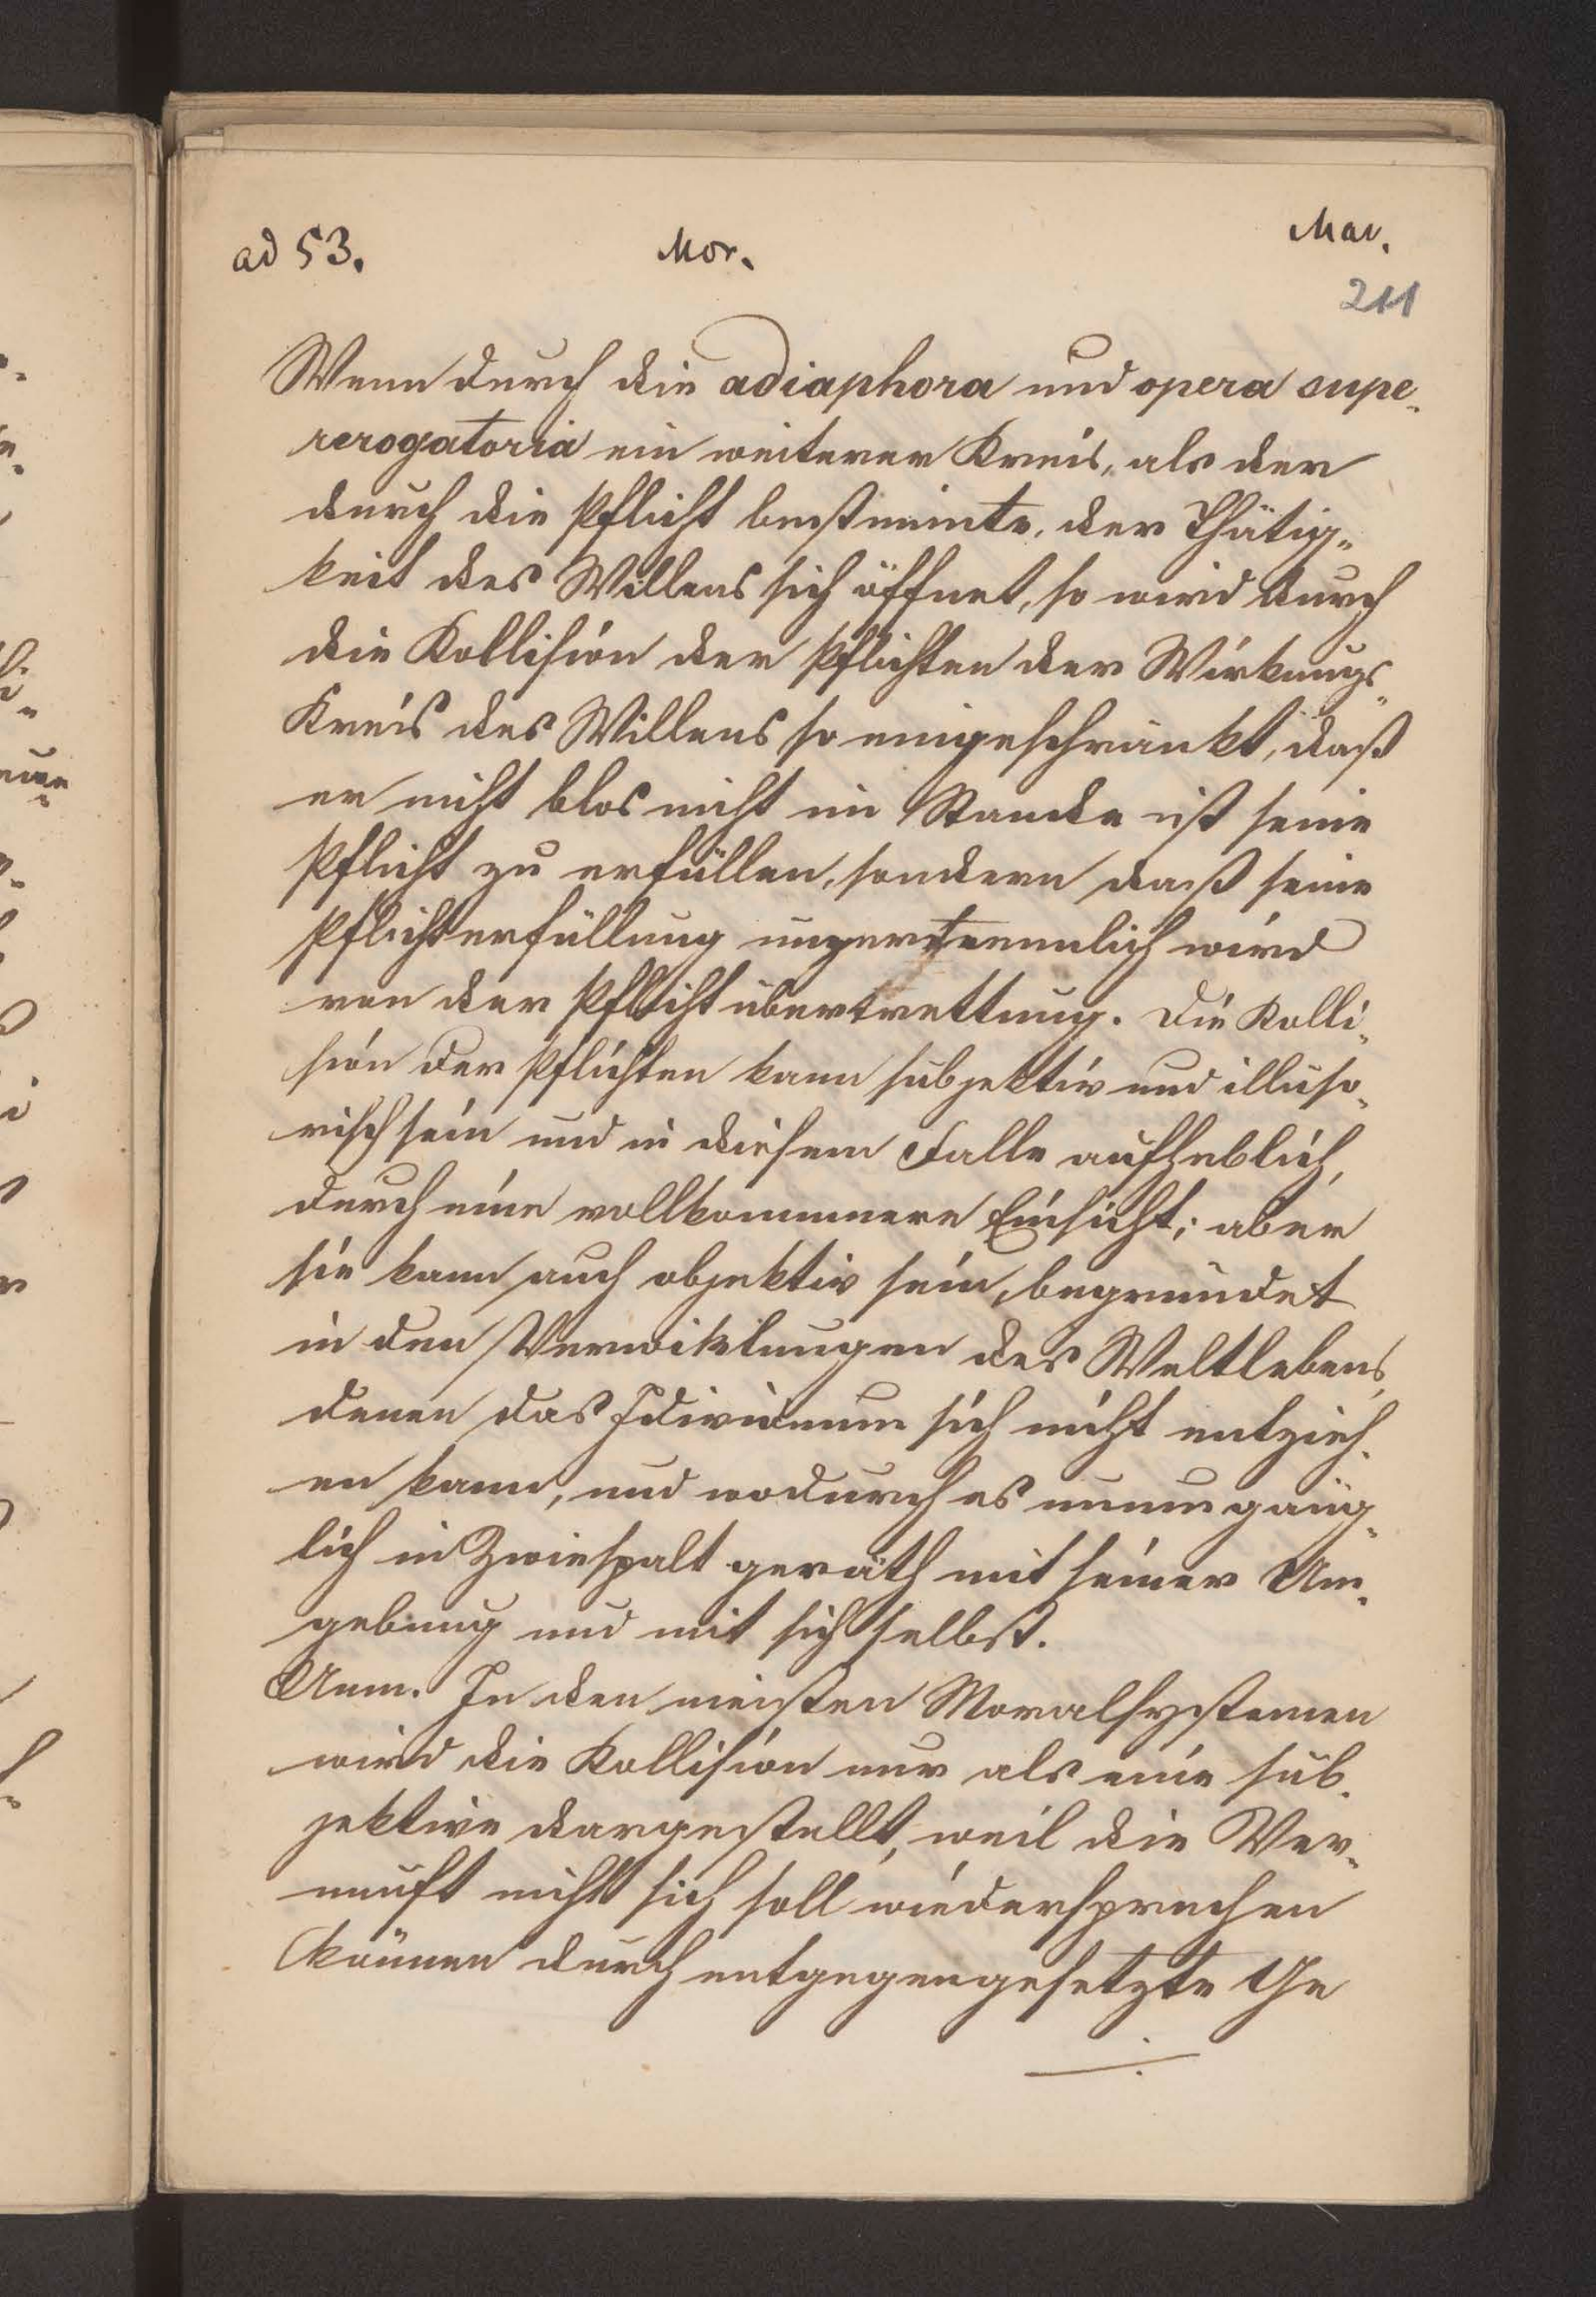 ad 53. Mor. Mar.
211
Wenn durch die adiaphora und opera supe-
rerogatoria ein weiterer Kreis, als der
durch die Pflicht bestimmte, der Thätig-
keit des Willens sich öffnet, so wird durch
die Kollision der Pflichten der Wirkungs-
Kreis des Willens so eingeschränkt, daß
er nicht blos nicht im Stande ist seine
Pflicht zu erfüllen, sondern daß seine
Pflichterfüllung unzertrennlich wird
von der Pflichtübertrettung. Die Kolli-
sion der Pflichten kann subjektiv und illuso-
risch sein und in diesem Falle aufheblich,
durch eine vollkommnere Einsicht; aber
sie kann auch objektiv sein, begründet
in den Verwiklungen des Weltlebens,
denen das Idividuum sich nicht entzieh-
en kann, und wodurch es unumgäng-
lich in Zwiespalt geräth mit seiner Um-
gebung und mit sich selbst.
Anm. In den meisten Moralsystemen
wird die Kollision nur als eine sub-
jektive dargestellt, weil die Ver-
nunft nicht sich soll wiedersprechen
können durch entgegengesetzte Ge